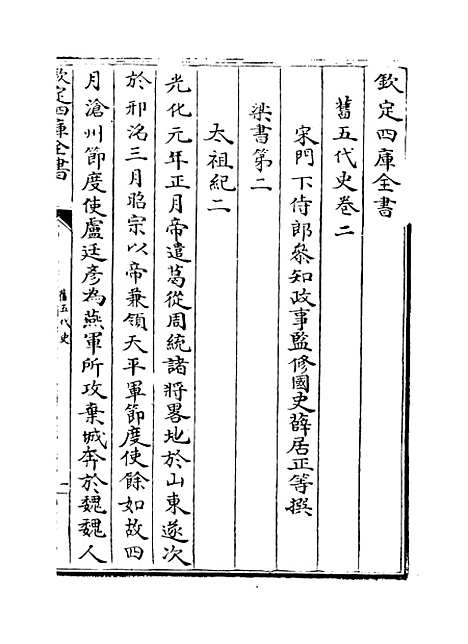 欽定四庫全書
舊五代史卷二
宋門下侍郎參知政事監修國史薛居正等撰
梁書第二
太祖紀二
光化元年正月帝遣葛從周統諸將畧地於山東遂次
於邢洺三月昭宗以帝兼領天平軍節度使餘如故四
月滄州節度使盧廷彥為燕軍所攻棄城奔於魏魏人
欽定四庫全書
舊五代史